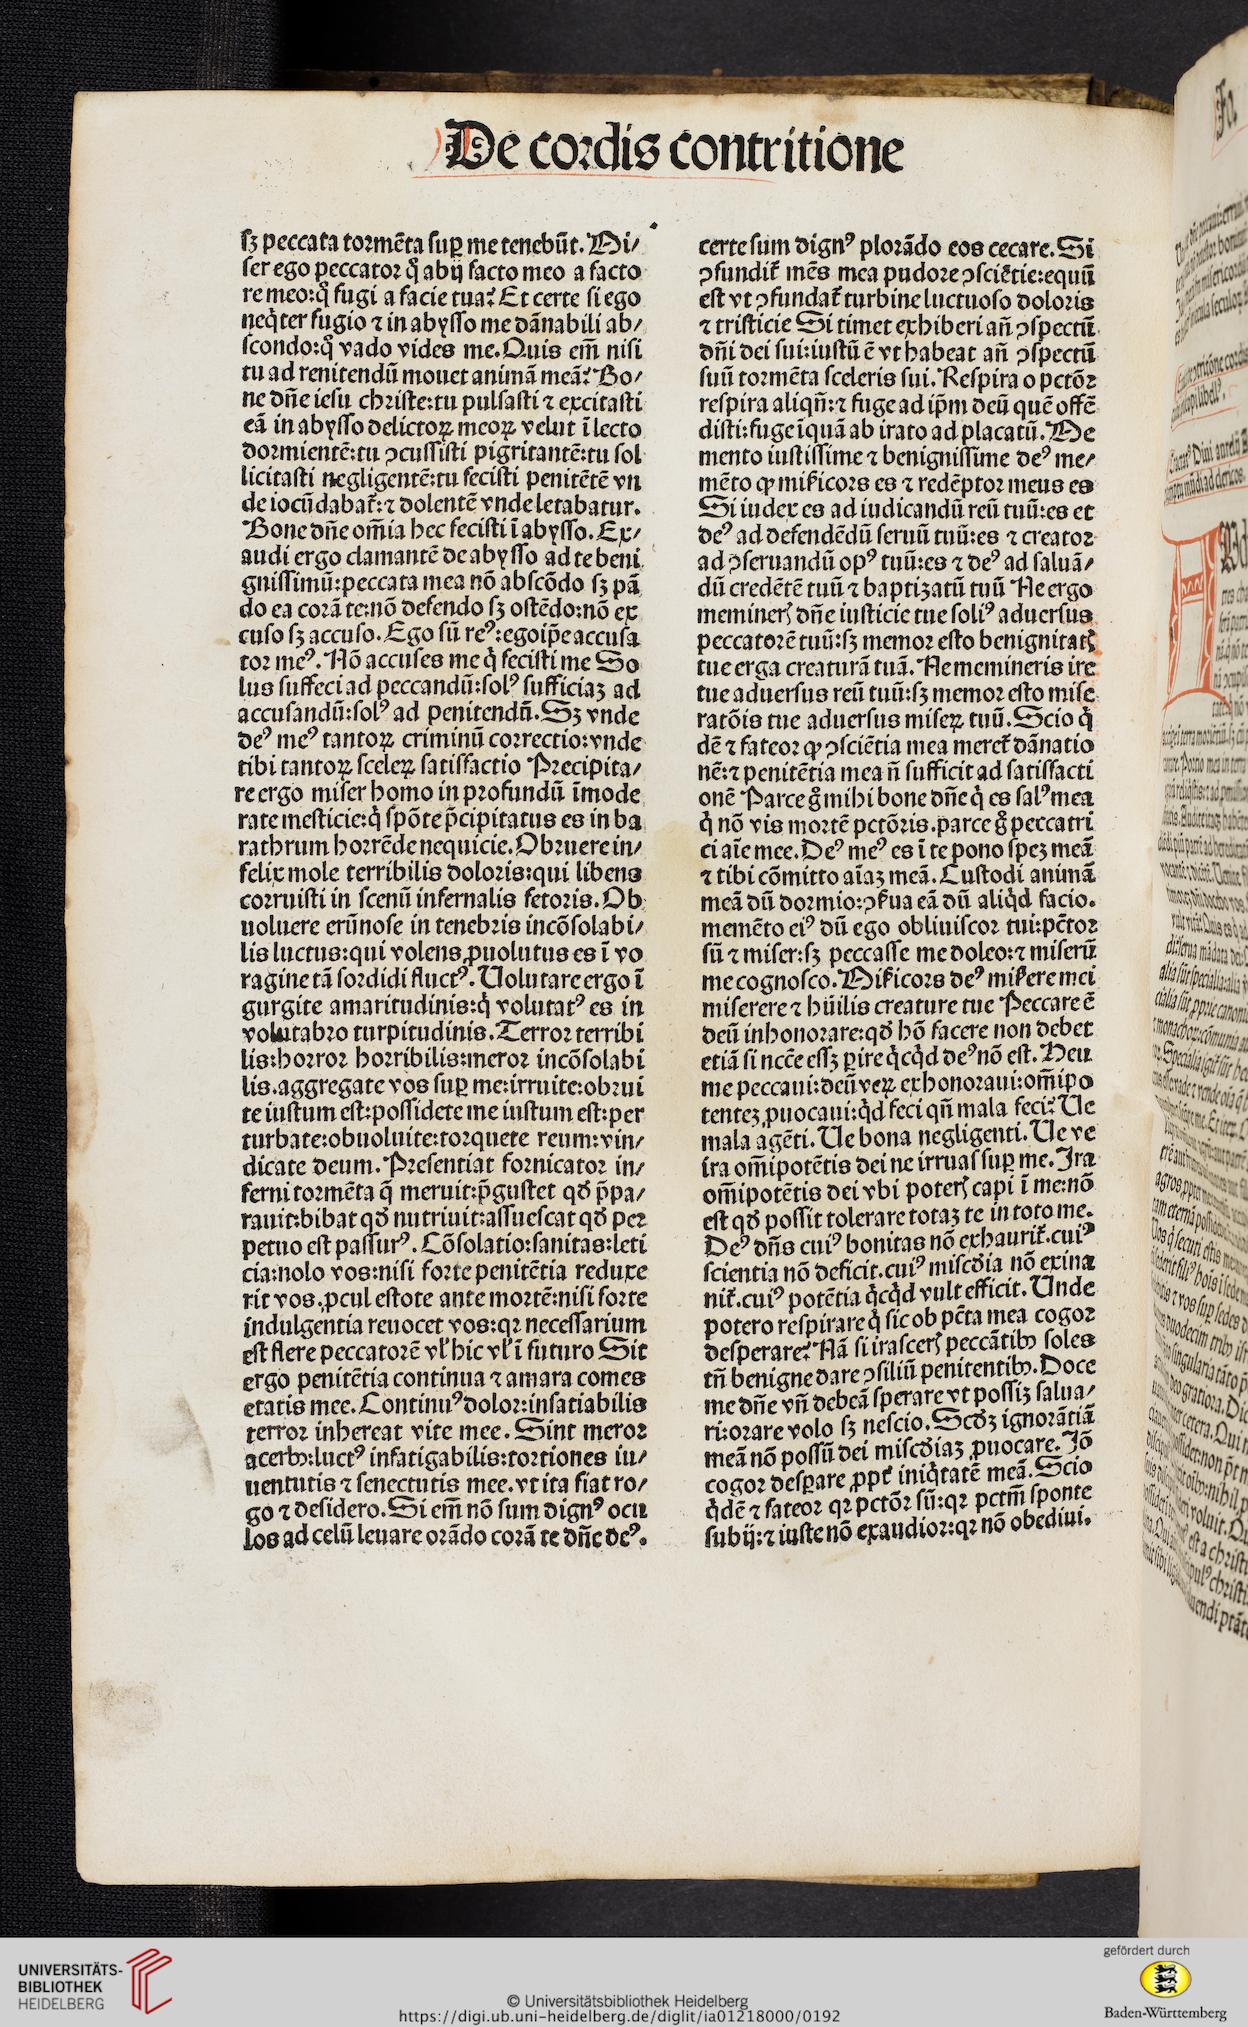 De cordis contritione
sꝫ peccata tormēta suꝑ me tenebūt. Mi/
ser ego peccator ꝙ abij facto meo a facto
re meo:ꝙ fugi a facie tua? Et certe si ego
neq̄ter fugio ⁊ in abysso me dānabili ab/
scondo:ꝙ vado vides me. Quis em̄ nisi
tu ad renitendū mouet animā meā? Bo/
ne dn̄e iesu christe:tu pulsasti ⁊ excitasti
eā in abysso delictoꝝ meoꝝ velut ī lecto
dormientē:tu ꝯcussisti pigritantē:tu sol
licitasti negligentē:tu fecisti penitētē vn
de iocūdabat̄:⁊ dolentē vnde letabatur.
Bone dn̄e om̄ia hec fecisti ī abysso. Ex/
audi ergo clamantē de abysso ad te beni
gnissimū:peccata mea nō abscōdo sꝫ pā
do ea corā te:nō defendo sꝫ ostēdo:nō ex
cuso sꝫ accuso. Ego sū reꝰ:egoip̄e accusa
tor meꝰ. Nō accuses me q̇ fecisti me So
lus suffeci ad peccandū:solꝰ sufficiaꝫ ad
accusandū:solꝰ ad penitendū. Sꝫ vnde
deꝰ meꝰ tantoꝝ criminū correctio:vnde
tibi tantoꝝ sceleꝝ satisfactio Precipita/
re ergo miser homo in profundū īmode
rate mesticie:q̇ spōte p̄cipitatus es in ba
rathrum horrēde nequicie. Obruere in/
felix mole terribilis doloris:qui libens
corruisti in scenū infernalis fetoris. Ob
uoluere erūnose in tenebris incōsolabi/
lis luctus:qui volens ꝓuolutus es ī vo
ragine tā sordidi fluctꝰ. Uolutare ergo ī
gurgite amaritudinis:q̇ volutatꝰ es in
volutabro turpitudinis. Terror terribi
lis:horror horribilis:meror incōsolabi
lis.aggregate vos suꝑ me:irruite:obrui
te iustum est:possidete me iustum est:per
turbate:obuoluite:torquete reum:vin/
dicate deum. Presentiat fornicator in/
ferni tormēta q̄ meruit:p̄gustet qđ p̄pa/
rauit:bibat qđ nutriuit:assuescat qđ per
petuo est passurꝰ. Cōsolatio:sanitas:leti
cia:nolo vos:nisi forte penitētia reduxe
rit vos.ꝓcul estote ante mortē:nisi forte
indulgentia reuocet vos:qꝛ necessarium
est flere peccatorē vl̓ hic vl̓ ī futuro Sit
ergo penitētia continua ⁊ amara comes
etatis mee. Continuꝰ dolor:insatiabilis
terror inhereat vite mee. Sint meror
acerbꝰ:luctꝰ infatigabilis:tortiones iu/
uentutis ⁊ senectutis mee.vt ita fiat ro/
go ⁊ desidero. Si em̄ nō sum dignꝰ ocu
los ad celū leuare orādo corā te dn̄e deꝰ.
certe sum dignꝰ plorādo eos cecare. Si
ꝯfundit̄ mēs mea pudore ꝯsciētie:equū
est vt ꝯfundat̄ turbine luctuoso doloris
⁊ tristicie Si timet exhiberi an̄ ꝯspectū
dn̄i dei sui:iustū ē vt habeat an̄ ꝯspectū
suū tormēta sceleris sui. Respira o pctōr
respira aliqn̄:⁊ fuge ad ip̄m deū quē offē
disti:fuge īquā ab irato ad placatū. Me
mento iustissime ⁊ benignissime deꝰ me/
mēto ꝙ mir̄icors es ⁊ redēptor meus es
Si iudex es ad iudicandū reū tuū:es et
deꝰ ad defendēdū seruū tuū:es ⁊ creator
ad ꝯseruandū opꝰ tuū:es ⁊ deꝰ ad saluā/
dū credētē tuū ⁊ baptizatū tuū Ne ergo
memineris dn̄e iusticie tue soliꝰ aduersus
peccatorē tuū:sꝫ memor esto benignitatis
tue erga creaturā tuā. Ne memineris ire
tue aduersus reū tuū:sꝫ memor esto mise
ratōis tue aduersus miseꝝ tuū. Scio q̇
dē ⁊ fateor ꝙ ꝯsciētia mea meret̄ dānatio
nē:⁊ penitētia mea n̄ sufficit ad satisfacti
onē Parce g̊ mihi bone dn̄e q̇ es salꝰ mea
q̇ nō vis mortē pctōris.parce g̊ peccatri
ci aīe mee. Deꝰ meꝰ es ī te pono speꝫ meā
⁊ tibi cōmitto aīaꝫ meā. Custodi animā
meā dū dormio:ꝯẜua eā dū aliq̇d facio.
memēto eiꝰ dū ego obliuiscor tui:pc̄tor
sū ⁊ miser:sꝫ peccasse me doleo:⁊ miserū
me cognosco. Mir̄icors deꝰ mir̄ere mei
miserere ⁊ hūilis creature tue Peccare ē
deū inhonorare:qđ hō facere non debet
etiā si ncēe essꝫ ꝑire q̇cq̇d deꝰ nō est. Heu
me peccaui:deū veꝝ exhonoraui:om̄ipo
tenteꝫ ꝓuocaui:q̇d feci qn̄ mala feci? Ue
mala agēti. Ue bona negligenti. Ue ve
ira om̄ipotētis dei ne irruas suꝑ me. Ira
om̄ipotētis dei vbi poteris capi ī me:nō
est qđ possit tolerare totaꝫ te in toto me.
Deꝰ dn̄s cuiꝰ bonitas nō exhaurit̄.cuiꝰ
scientia nō deficit.cuiꝰ miscđia nō exina
nit̄.cuiꝰ potētia q̇cq̇d vult efficit. Unde
potero respirare q̇ sic ob pc̄ta mea cogor
desperare? Nā si irasceris peccātibꝰ soles
tn̄ benigne dare ꝯsiliū penitentibꝰ. Doce
me dn̄e vn̄ debeā sperare vt possiꝫ salua/
ri:orare volo sꝫ nescio. Scđꝫ ignorātiā
meā nō possū dei miscđiaꝫ ꝓuocare. Jō
cogor desꝑare ꝓpt̄ iniq̇tatē meā. Scio
q̇dē ⁊ fateor qꝛ pctōr sū:qꝛ pctm̄ sponte
subij:⁊ iuste nō exaudior:qꝛ nō obediui.
UNIVERSITÄTS-
BIBLIOTHEK
HEIDELBERG
© Universitätsbibliothek Heidelberg
https://digi.ub.uni-heidelberg.de/diglit/ia01218000/0192
gefördert durch
Baden-Württemberg